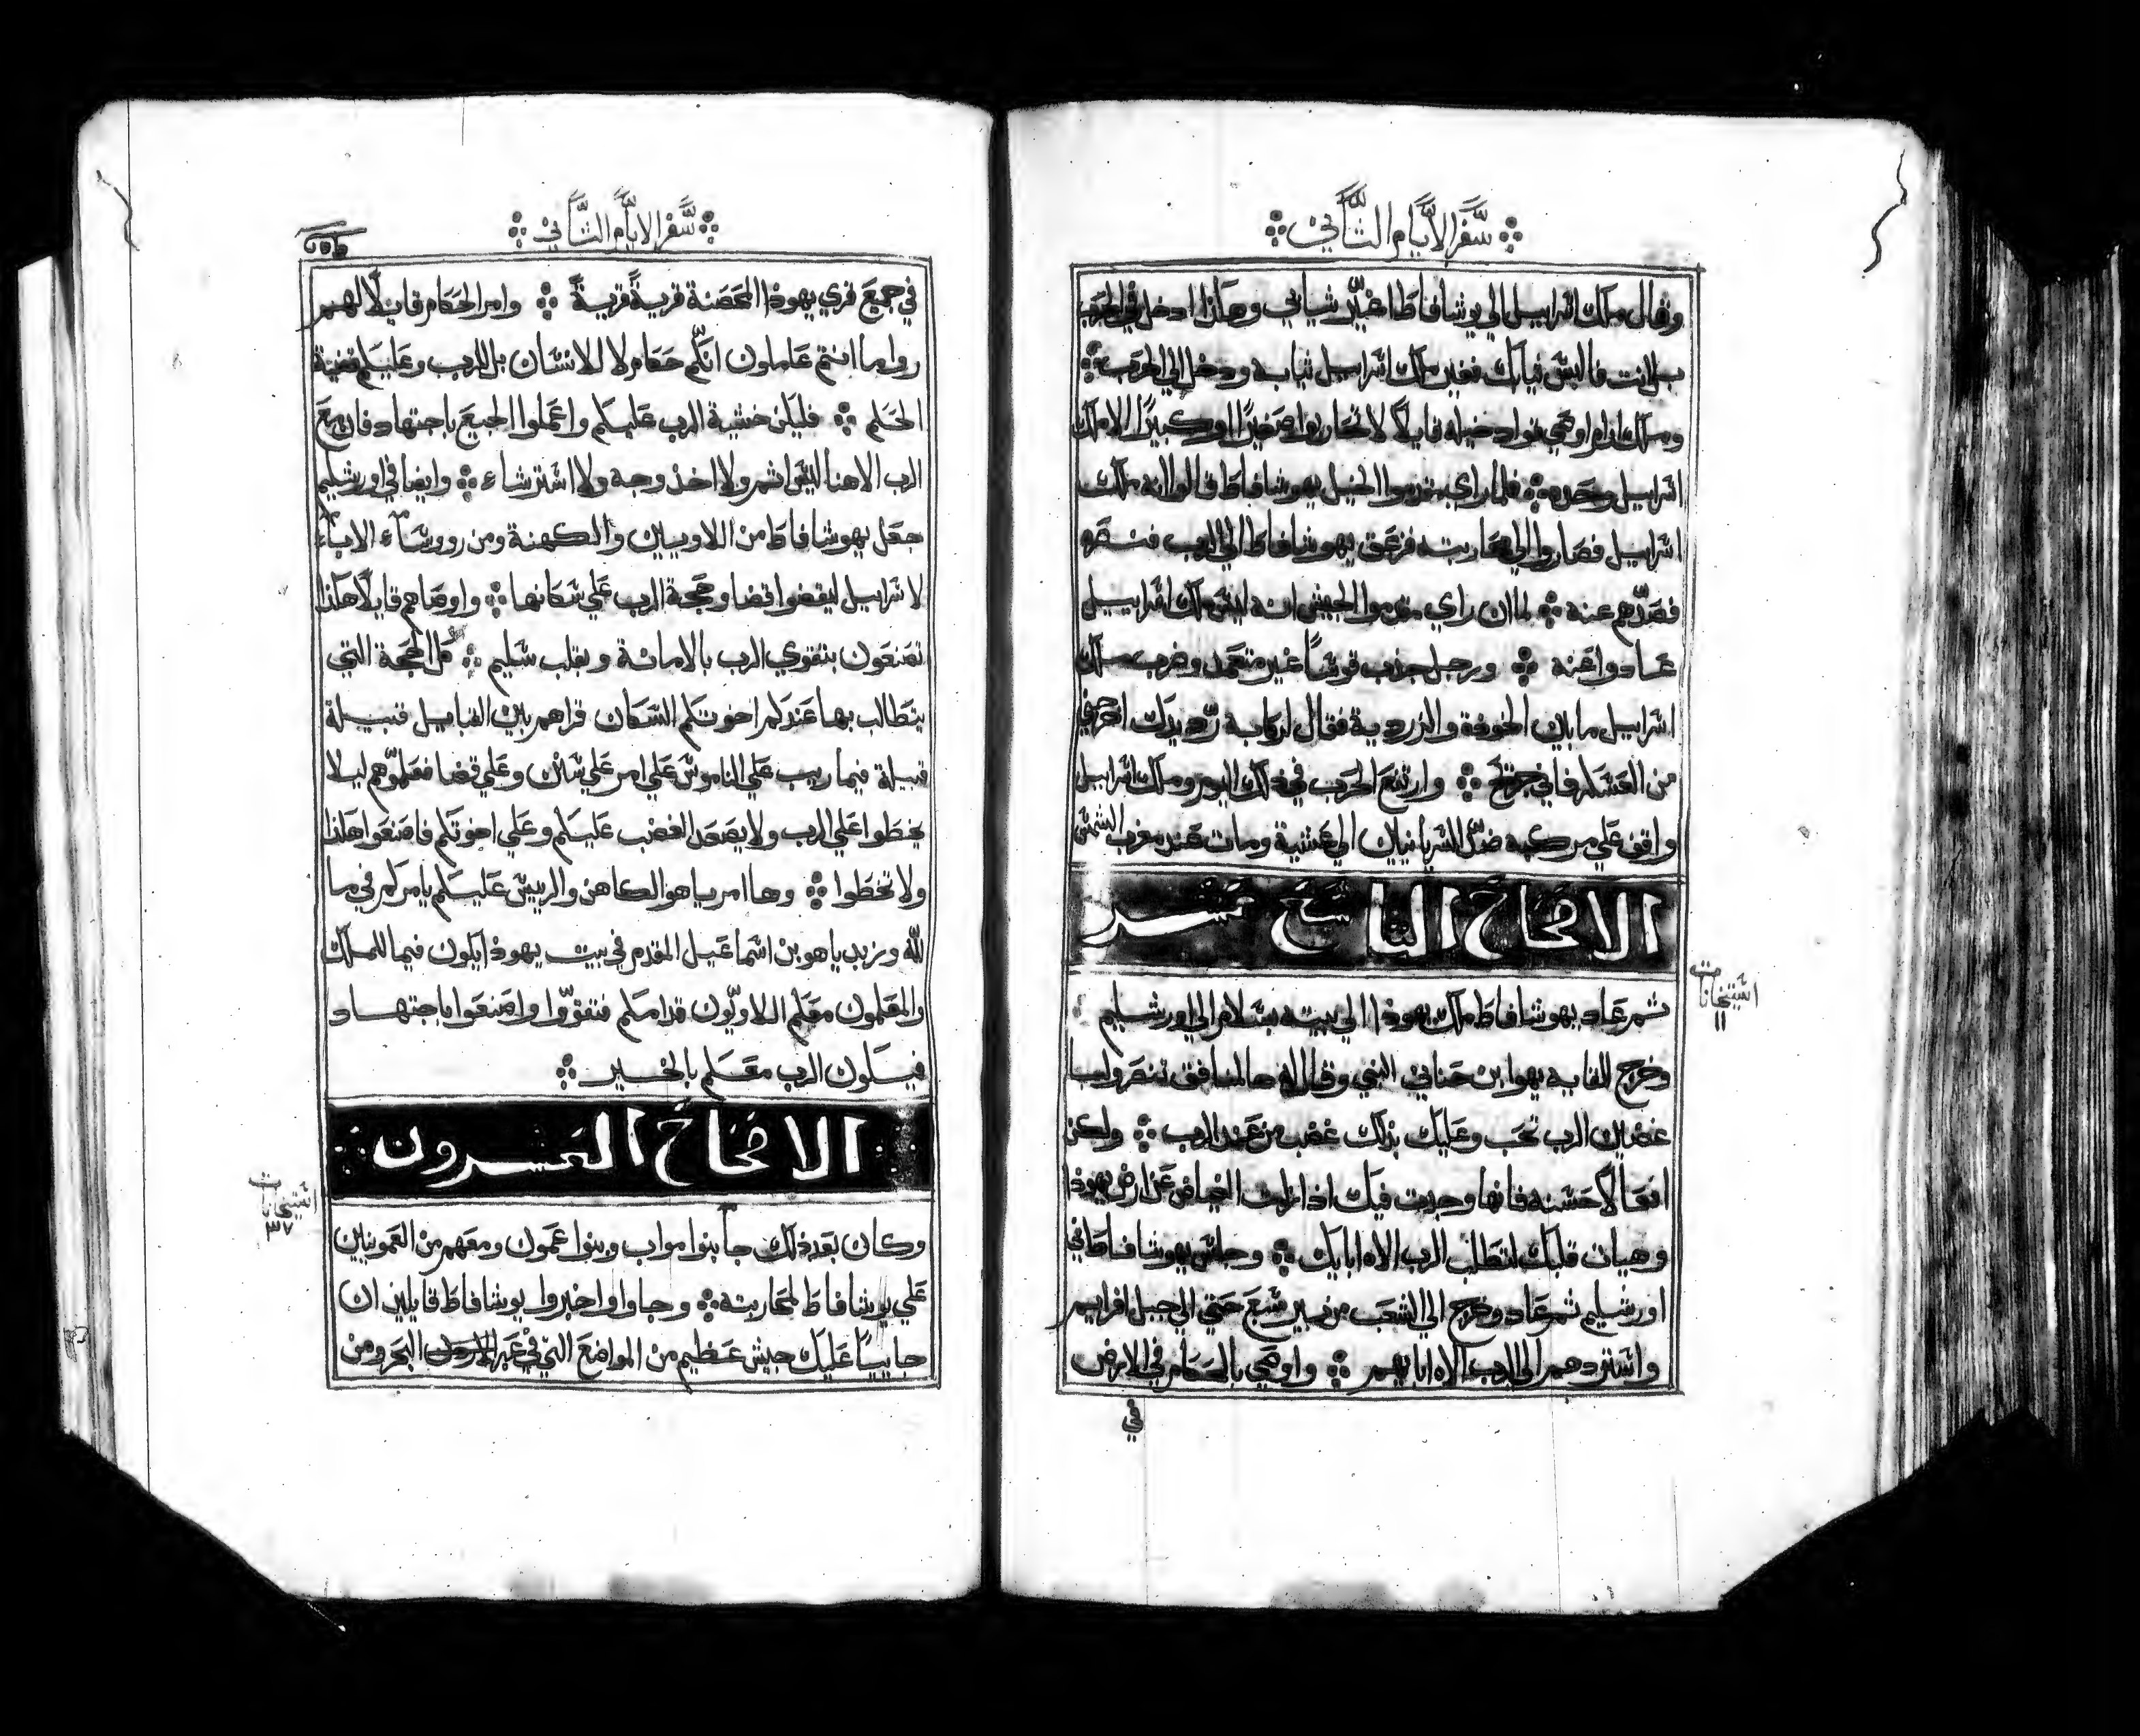 سفر الايام الثاني
وقال ملك اسراييل الي يوشافاط اغير ثيابي وهكذا ادخل في الحرب
بل انت فالبس ثيابك فغير ملك اسراييل ثيابه ودخل الي الحرب
وملك ارام اوصي قواد خيله قايلاً لا تحاربوا صغيرًا او كبيرًا الا ملك
اسراييل وحده فلما راي مقدموا الخيل يهوشافاط قالوا انه ملك
اسراييل فصاروا الي محاربته فزعق يهوشافاط الي الرب فنصره
فصدهم عنه لما ان راي مقدموا الجيش انه ليس ملك اسراييل
عادوا عنه ورجل جذب قوسًا غير متعمد وضرب ملك
اسراييل ما بين الخوذة والزردية فقال لركابه رد يدك اخرجني
من العسكر فاني جرحت وارتفع الحرب في ذلك اليوم وملك اسراييل
واقف علي مركبه ضد السريانيين الي عشية ومات عند مغرب الشمس
الاصحاح التاسع عشر
استيخانات
١١
ثم عاد يهوشافاط ملك يهوذا الي بيته بسلام الي اورشليم
وخرج للقايه يهوا بن حناني النبي وقال له هل المنافق تنصر ولمن
غضبان الرب تحب وعليك بذلك غضب من عند الرب ولكن
افعالاً حسنه فانها وجدت فيك اذا زلت الغياض عن ارض يهوذا
وهيات قلبك لتطلب الرب الاه ابايك وجلس يهوشافاط في
اورشليم ثم عاد وخرج الي الشعب من بير سبع حتي الي جبل افرايم
واستردهم الي الرب الاه ابايهم واوصي بالحكام في الارض
في
سفر الايام الثاني
في جميع قري يهوذا المحصنة قرية قرية وامر الحكام قايلاً لهم
روا ما انتم عاملون انكم حكام لا للانسان بل للرب وعليكم قضية
الحكم فليكن خشية الرب عليكم واعملوا الجميع باجتهاد فان مع
الرب الاهنا ليس اثم ولا اخذ وجه ولا استرشاء وايضا في اورشليم
جعل يهوشافاط من اللاويين والكهنة ومن رووساء الاباء
لاسراييل ليقضوا قضا وحجة الرب علي سكانها واوصاهم قايلاً هكذا
تصنعون بتقوي الرب بالامانة وبقلب سليم كل الحجة التي
يتطالب بها عندكم اخوتكم السكان قراهم بين القبايل قبيلة
قبيلة فيما ريب علي الناموس علي امر علي سنن وعلي قضا فعلموهم ليلا
يخطوا علي الرب ولا يصعد الغضب عليكم وعلي اخوتكم فاصنعوا هكذا
ولا تخطوا وها امريا هو الكاهن والرييس عليكم يامركم في ما
لله وزبديا هو بن اسماعيل المقدم في بيت يهوذا يكون فيما للملك
والمعلمون معكم اللاويون قدامكم فتقووا واصنعوا باجتهاد
فيكون الرب معكم بالخير
الاصحاح العشرون
استيخانات
٣٧
وكان بعد ذلك جا بنوا مواب وبنوا عمون ومعهم من العمونيين
علي يوشافاط لمحاربته وجاوا واخبروا يوشافاط قايلين ان
جاييًا عليك جيش عظيم من المواضع التي في عبر البحر ومن